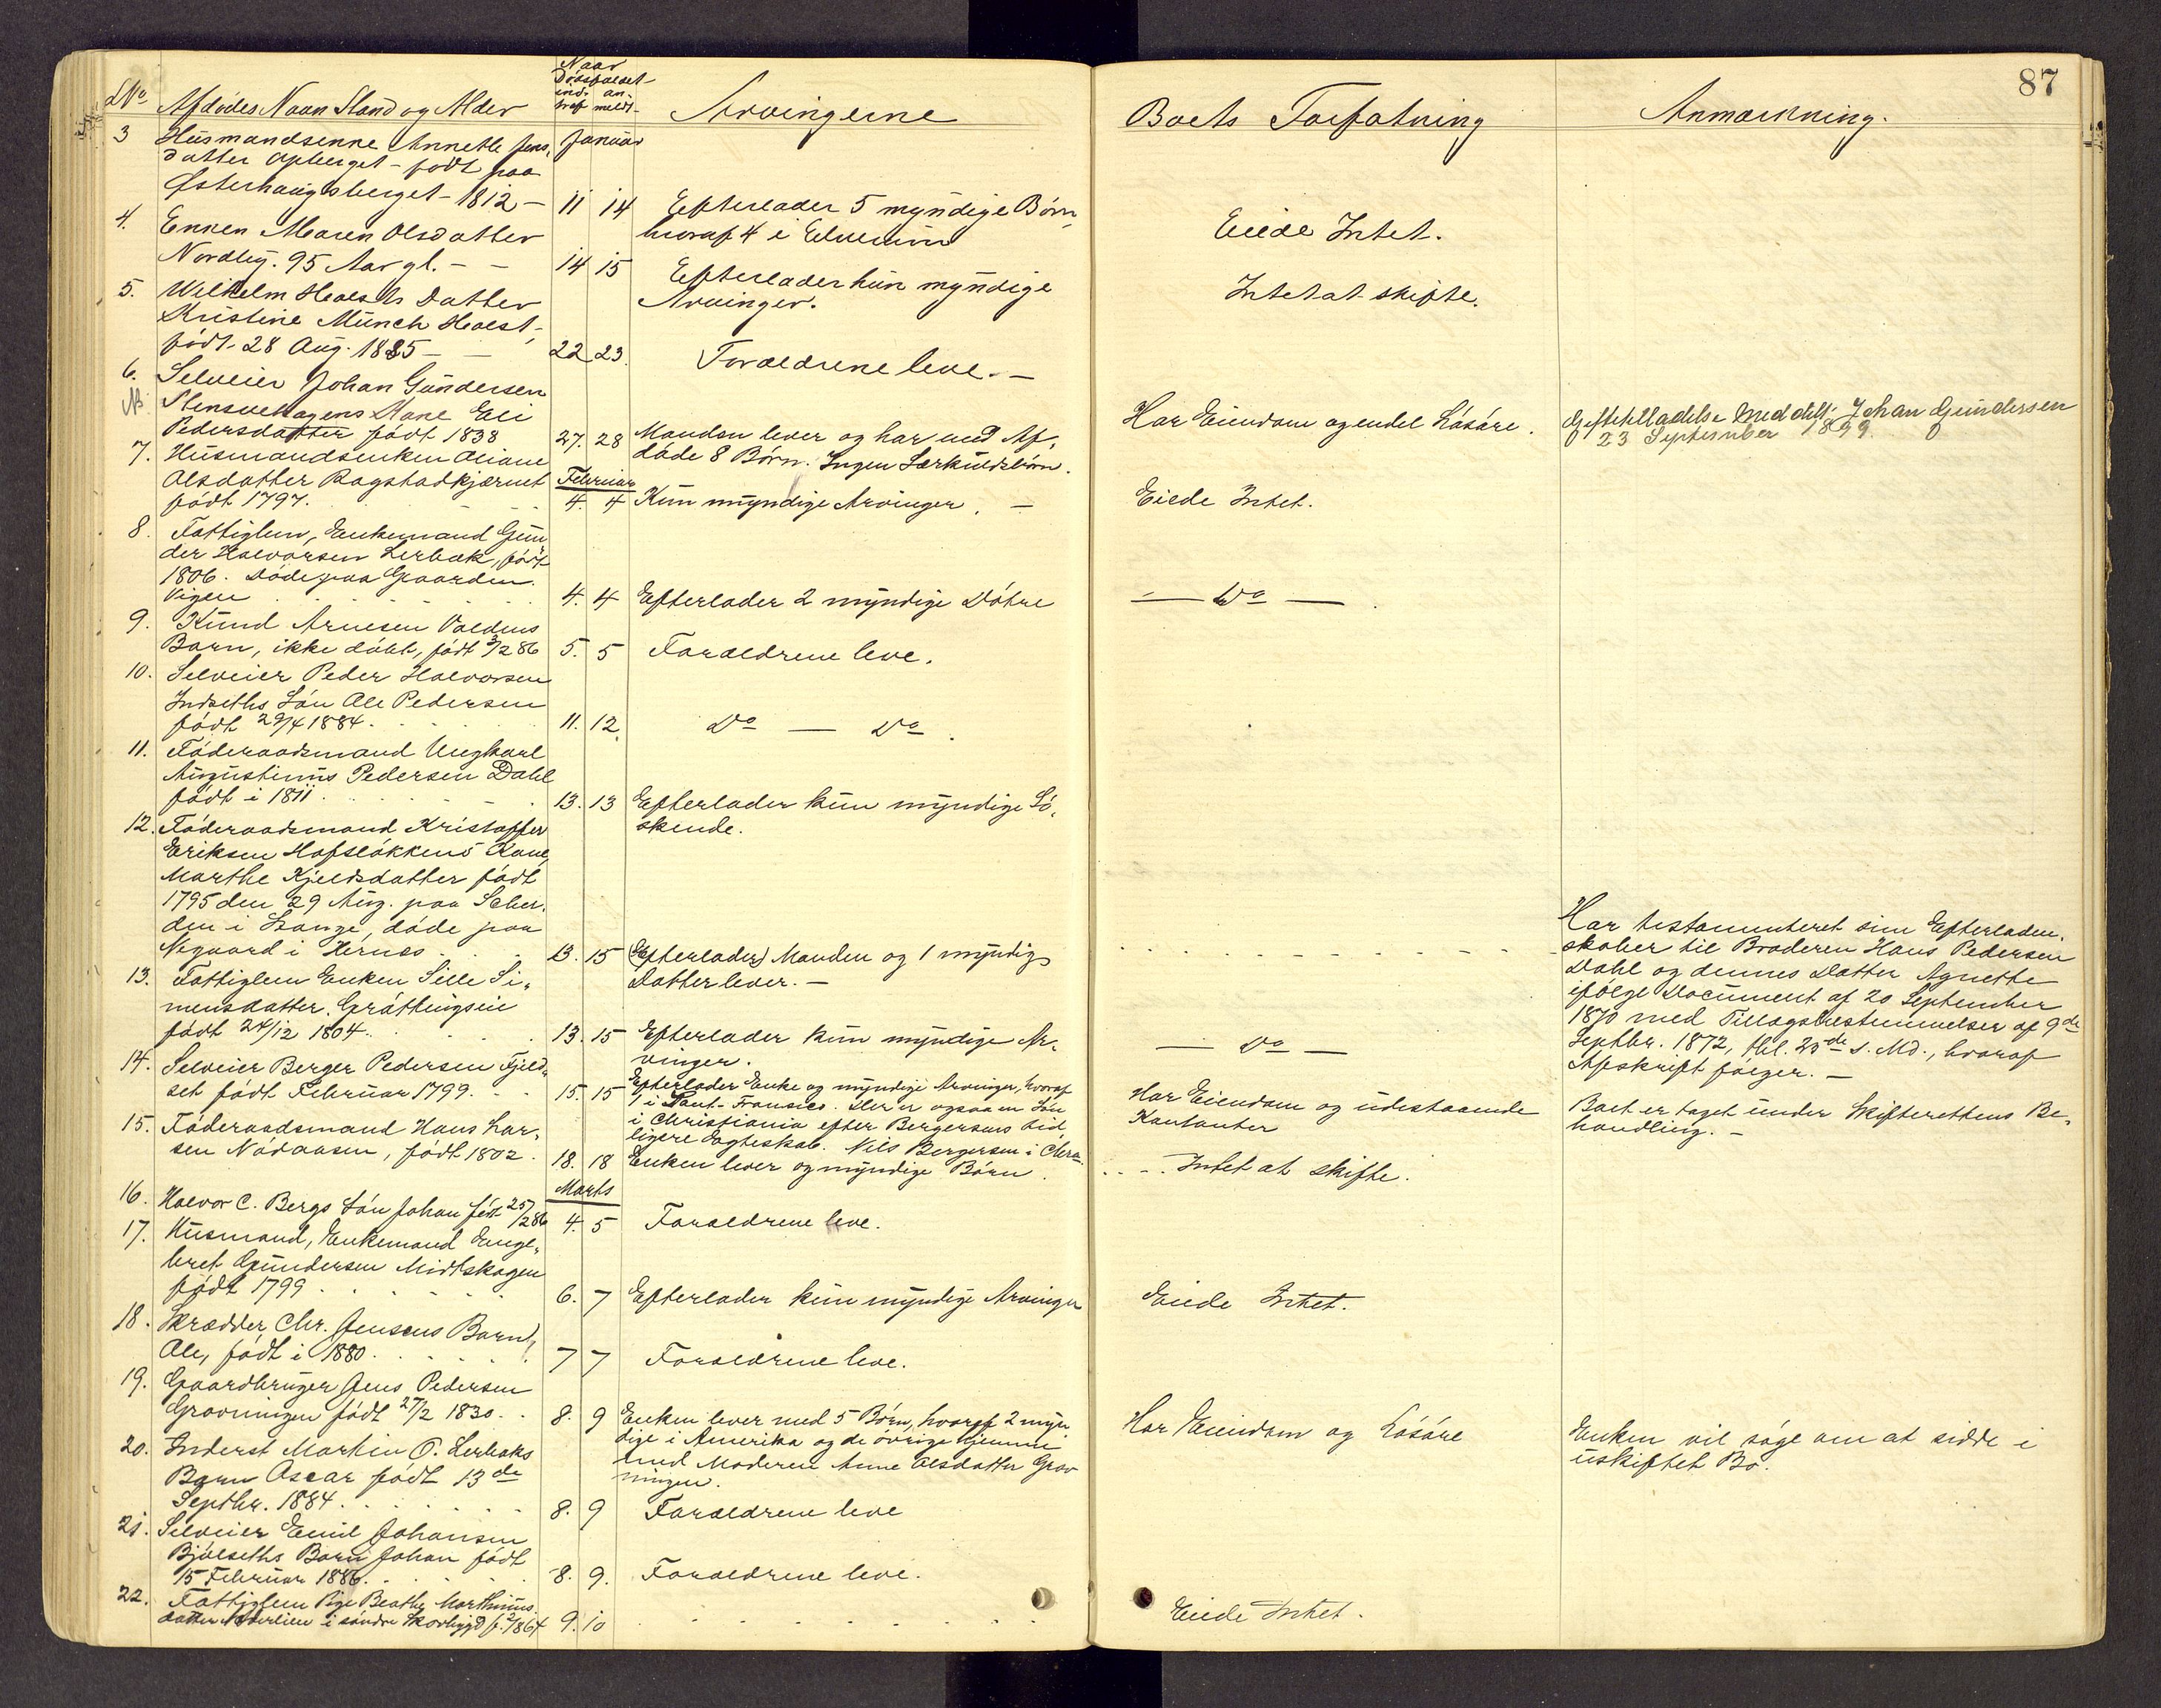 87
No Afdødes Navn Stand og Alder
Naar Dødsfaldet indtraf anmeldt
Arvingerne
Boets Forfatning
Anmærkning.
3 Husmandsenke Annethe Jens,
datter Opberget - født paa
Østerhaugsberget - 1812 -
Januar
11 14
Efterlader 5 myndige Børn
hvoraf 4 i Elverum
Eiede Intet.
4. Enken Maren Olsdatter
Nordby. 95 Aar gl. - -
14 15
Efterlader kun myndige
Arvinger.
Intet at skifte.
5. Wilhelm Holsts Datter
Kristine Münch Holst,
født 28 Aug. 1885 -
22 23
Forældrene leve. -
6. Selveier Johan Gundersen
NB Kone Eli
Pedersdatter født 1838
27. 28
Manden lever og har med Af,
døde 8 Børn. Ingen Særkuldsbørn.
Har Eiendom og endel Løsøre.
Giftetilladelse meddelt Johan Gundersen
23 September 1899
7. Husmandsenken Oliane
Olsdatter Bagstadkjernet
født 1797.
Februar
4. 4
Kun myndige Arvinger. -
Eiede Intet.
8. Fattiglem, Enkemand Gun
der Halvorsen Lerbæk, født
1806. Døde paa Gaarden
Vigen
4. 4
Efterlader 2 myndige Døtre
- Do -
9. Knud Arnesen Voldens
Barn, ikke døbt, født 3/2 86
5. 5
Forældrene leve.
10. Selveier Peder Halvorsen
Indseths Søn Ole Pedersen
født 29/4 1884.
11. 12.
Do - Do.
11. Føderaadsmand Ungkarl
Augustinus Pedersen Dahl
født i 1811.
13. 13
Efterlader kun myndige Sø,
skende.
12. Føderaadsmand Kristoffer
Eriksen Hofsløkkens Kone,
Marthe Kjeldsdatter født
1795 den 29 Aug. paa
den i Stange, døde paa
Nygaard i Hernæs
13. 15
(Efterlader) Manden og 1 myndig
Datter lever. -
Har testamenteret sine Efterladen,
skaber til Broderen Hans Pedersen
Dahl og dennes Datter Agnethe
ifølge Document af 20 September
1870 med Tillægsbestemmelser af 9de
Septbr. 1872, thl. 25de s. Md., hvoraf
Afskrift følger. -
13. Fattiglem Enken Sille Si,
mensdatter. Grøttingseie
født 24/12 1804.
13. 15
Efterlader kun myndige Ar,
vinger.
- Do -
14. Selveier Berger Pedersen Fjeld,
set født Februar 1799.
15. 15
Efterlader Enke og myndige Arvinger, hvoraf
1 i Sant-Fransico. Der er ogsaa en Søn
i Christiania efter Bergersens tid
ligere Ægteskab. Nils Bergersen i Chra.
Har Eiendom og udestaaende
Kontanter
Boet er taget under Skifterettens Be,
handling. -
15. Føderaadsmand Hans Lar,
sen Nødaasen, født 1802.
18. 18
Enken lever og myndige Børn.
Intet at skifte.
Marts
16. Halvor C. Bergs Søn Johan født 25/2 86
4. 5
Forældrene leve.
17. Husmand, Enkemand Enge,
bret Gundersen Midtskogen
født 1799
6. 7
Efterlader kun myndige Arvinger
Eiede Intet.
18. Skrædder Chr. Jensens Barn,
Ole, født i 1880.
7 7
Forældrene leve.
19. Gaardbruger Jens Pedersen
Grovningen født 27/2 1830.
8. 9
Enken lever med 5 Børn, hvoraf 2 myn
dige i Amerika og de øvrige hjemme
med Moderen Anne Olsdatter Grov
ningen.
Har Eiendom og Løsøre
Enken vil søge om at sidde i
uskiftet Bo.
20. Inderst Martin O. Lerbæks
Barn Oscar født 13de
Septbr. 1884.
8. 9
Forældrene leve
21. Selveier Emil Johansen
Bjølseths Barn Johan født
15 Februar 1886.
8. 9.
Forældrene leve.
22. Fattiglem Pige Beathe Marthinus,
datter i søndre Skovbygd f. 2/1864
9. 10
Eiede Intet.